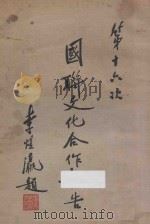 第十六次
國聯文化合作告
李煜瀛題